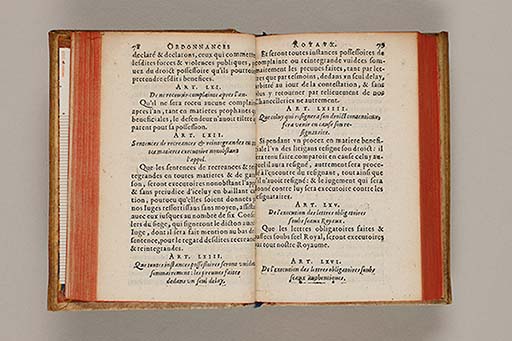 78 ORDONNANCES
declaré & declarons, ceux qui commettẽt
lesdites forces & violences publiques,
du droict possessoire qu'ils pourroiẽt
pretendre esdits benefices.
ART. LXI.
De ne receuoir complainte apres l'an.
Qu'il ne sera receu aucune complainte
apres l'an, tant en matieres prophanes q
beneficiales, le defendeur n'ayant tiltre
parent pour sa possession.
ART. LXII.
Sentences de recreances & reintegrandes en
matieres executoires nonobstant
l'appel.
Que les sentences de recreances & rein-
tegrandes en toutes matieres & de gar-
son, seront executoires nonobstant l'appel
& sans preiudice d'iceluy en baillant cau-
tion, pourueu qu'elles soient donnees par
nos Iuges ressortissans sans moyen, assistez
auec eux iusques au nombre de six Conseil-
lers du siege, qui signeront le dicton auec
Iuge, dont il sera fait mention au bas de
sentence, pour le regard desdites recreances
& reintegrandes.
ART. LXIII.
Que toutes instances possessoires seront vuidees
sommairement: les preuues faites
dedans vn seul delay.
ROYAVX. 79
Et seront toutes instances possessoires de
complainte ou reintegrande vuidees som-
mairement les preuues faites, tant par let-
tres que par tesmoins, dedans vn seul delay,
arbitré au iour de la contestation, & sans
plus y retourner par relieuement de nos
Chancelleries ne autrement.
ART. LXIIII.
Que celuy qui resignera son droict
sera venir en cause son re-
signataire.
Si pendant vn procez en matiere benefi-
ciale l'vn des litigans resigne son droict: il
sera tenu faire comparoir en cause celuy au-
quel il aura resigné, autrement sera proce-
dé à l'encontre du resignant, tout ainsi que
s'il n'auoit resigné: & le iugement qui sera
donné contre luy sera executoire contre les
resignataire.
ART. LXV.
De l'execution des lettres obligatoires
soubs seaux Royaux.
Que les lettres obligatoires faites &
passees soubs seel Royal, seront executoires
par tout nostre Royaume.
ART. LXVI.
De l'execution des lettres obligatoires soubs
seaux authentiques.